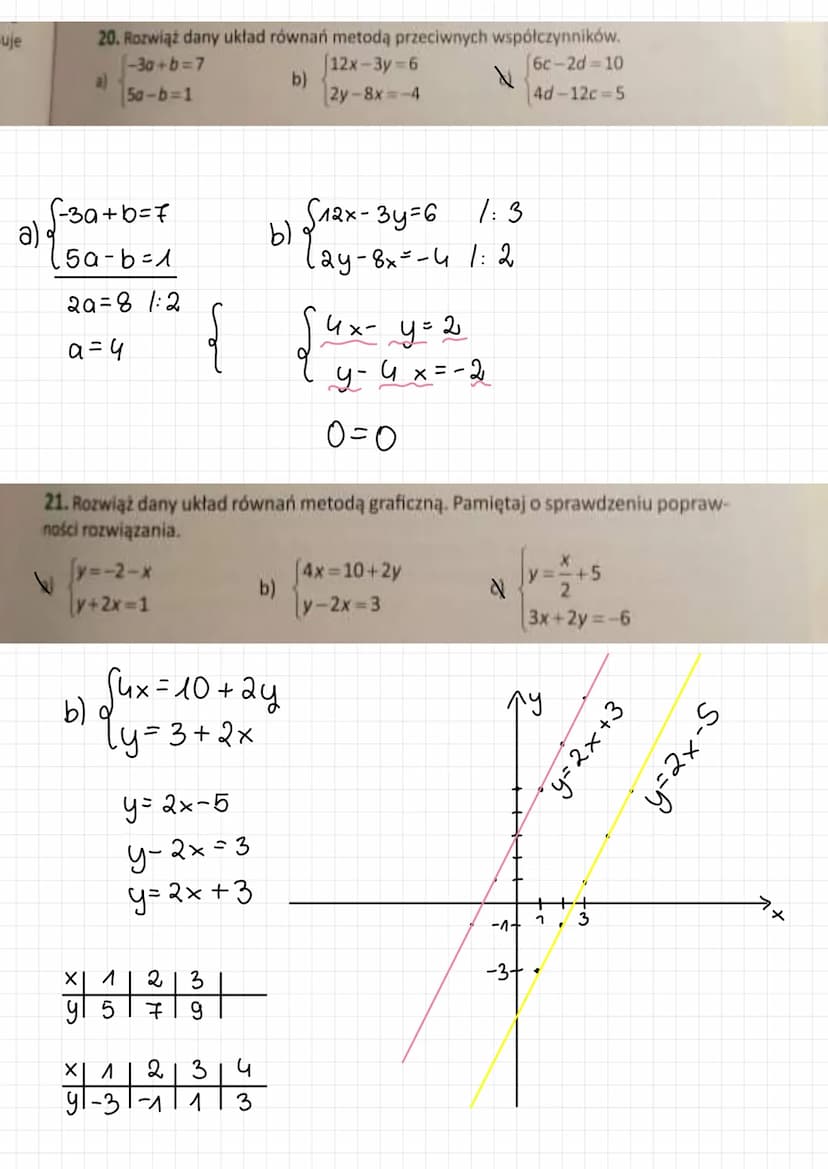 uje
20. Rozwiąż dany układ równań metodą przeciwnych współczynników.
a) {-3a+b=7
5a-b=1
b) {12x-3y=6
2y-8x=-4
{6c-2d=10
4d-12c=5
a) {-3a+b=7
5a-b=1
2a=8 /:2
a=4
{
b) {12x-3y=6 /:3
2y-8x=-4 /:2
{4x-y=2
y-4x=-2
0=0
21. Rozwiąż dany układ równań metodą graficzną. Pamiętaj o sprawdzeniu popraw-
ności rozwiązania.
{y=-2-x
y+2x=1
b) {4x=10+2y
y-2x=3
{y=x/2+5
3x+2y=-6
b) {4x=10+2y
y=3+2x
y=2x-5
y-2x=3
y=2x+3
x| 1 | 2 | 3 |
y| 5 | 7 | 9 |
x| 1 | 2 | 3 | 4
y|-3|-1| 1 | 3
y
y=2x+3
y=2x-5
x
1 3
-1
-3